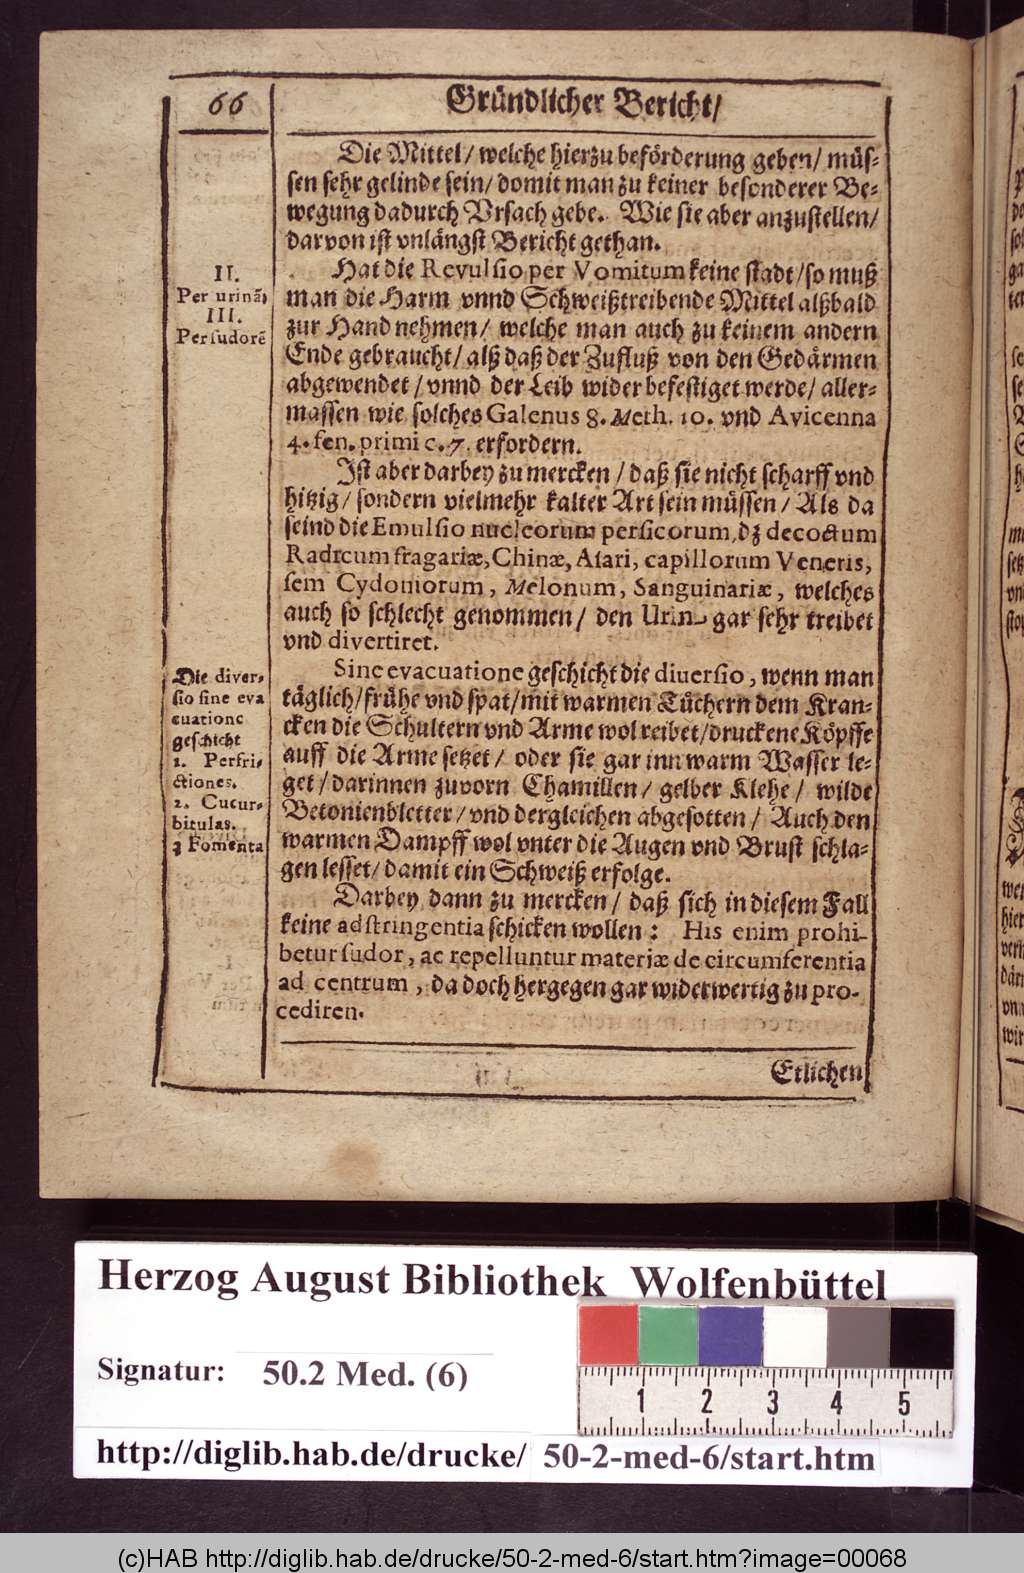 66
Gründlicher Bericht/
Die Mittel/ welche hierzu beförderung geben/ müs-
sen sehr gelinde sein/ domit man zu keiner besonderer Be-
wegung dadurch Vrsach gebe. Wie sie aber anzustellen/
darvon ist vnlängst Bericht gethan.
Hat die Revulsio per Vomitum keine stadt/ so muß
man die Harm vnnd Schweißtreibende Mittel alßbald
zur Hand nehmen/ welche man auch zu keinem andern
Ende gebraucht/ alß daß der Zufluß von den Gedärmen
abgewendet/ vnnd der Leib wider befestiget werde/ aller-
massen wie solches Galenus 8. Meth. 10. vnd Avicenna
4. fen. primi c. 7. erfordern.
Ist aber darbey zu mercken/ daß sie nicht scharff vnd
hitzig/ sondern vielmehr kalter Art sein müssen/ Als da
seind die Emulsio nucleorum persicorum, dz decoctum
Radrcum fragariæ, Chinæ, Asari, capillorum Veneris,
sem Cydoniorum, Melonum, Sanguinariæ, welches
auch so schlecht genommen/ den Urin gar sehr treibet
vnd divertiret.
Sine evacuatione geschicht die diversio, wenn man
täglich/ frühe vnd spat/ mit warmen Tüchern dem Kran-
cken die Schultern vnd Arme wol reibet/ druckene Köpffe
auff die Arme setzet/ oder sie gar inn warm Wasser le-
get/ darinnen zuvorn Chamillen/ gelber Klehe/ wilde
Betonienbletter/ vnd dergleichen abgesotten/ Auch den
warmen Dampff wol vnter die Augen vnd Brust schla-
gen lesset/ damit ein Schweiß erfolge.
Darbey dann zu mercken/ daß sich in diesem Fall
keine adstringentia schicken wollen: His enim prohi-
betur sudor, ac repelluntur materiæ de circumferentia
ad centrum, da doch hergegen gar widerwertig zu pro-
cediren.
Etlichen
II.
Per urinā,
III.
Per sudorē
Die diver-
sio sine eva
cuatione
geschicht
1. Perfri-
ctiones.
2. Cucur-
bitulas.
3 Fomenta
Herzog August Bibliothek Wolfenbüttel
Signatur: 50.2 Med. (6)
1 2 3 4 5
http://diglib.hab.de/drucke/ 50-2-med-6/start.htm
(c)HAB http://diglib.hab.de/drucke/50-2-med-6/start.htm?image=00068